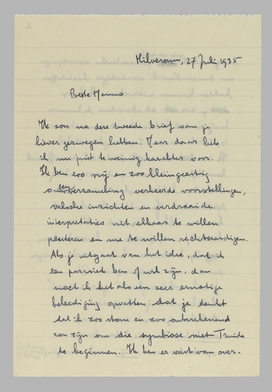 Hilversum, 27 Juli 1935
Beste Menno
Ik zou na deze tweede brief van je
liever gezwegen hebben. Maar daar heb
ik nu juist te weinig karakter voor.
Ik ben zoo vrij en zoo kleingeestig
een verzameling verkeerde voorstellingen,
valsche inzichten en verdraaide
interpretaties uit elkaar te willen
peuteren en me te willen rechtvaardigen.
Als je uitgaat van het idee, dat ik
een parasiet ben of wil zijn, dan
moet ik het als een zeer ernstige
beleediging opvatten dat je denkt
dat ik zoo stom en zoo
zou zijn om die symbiose met Truida
te beginnen. Ik ben er vast van over-